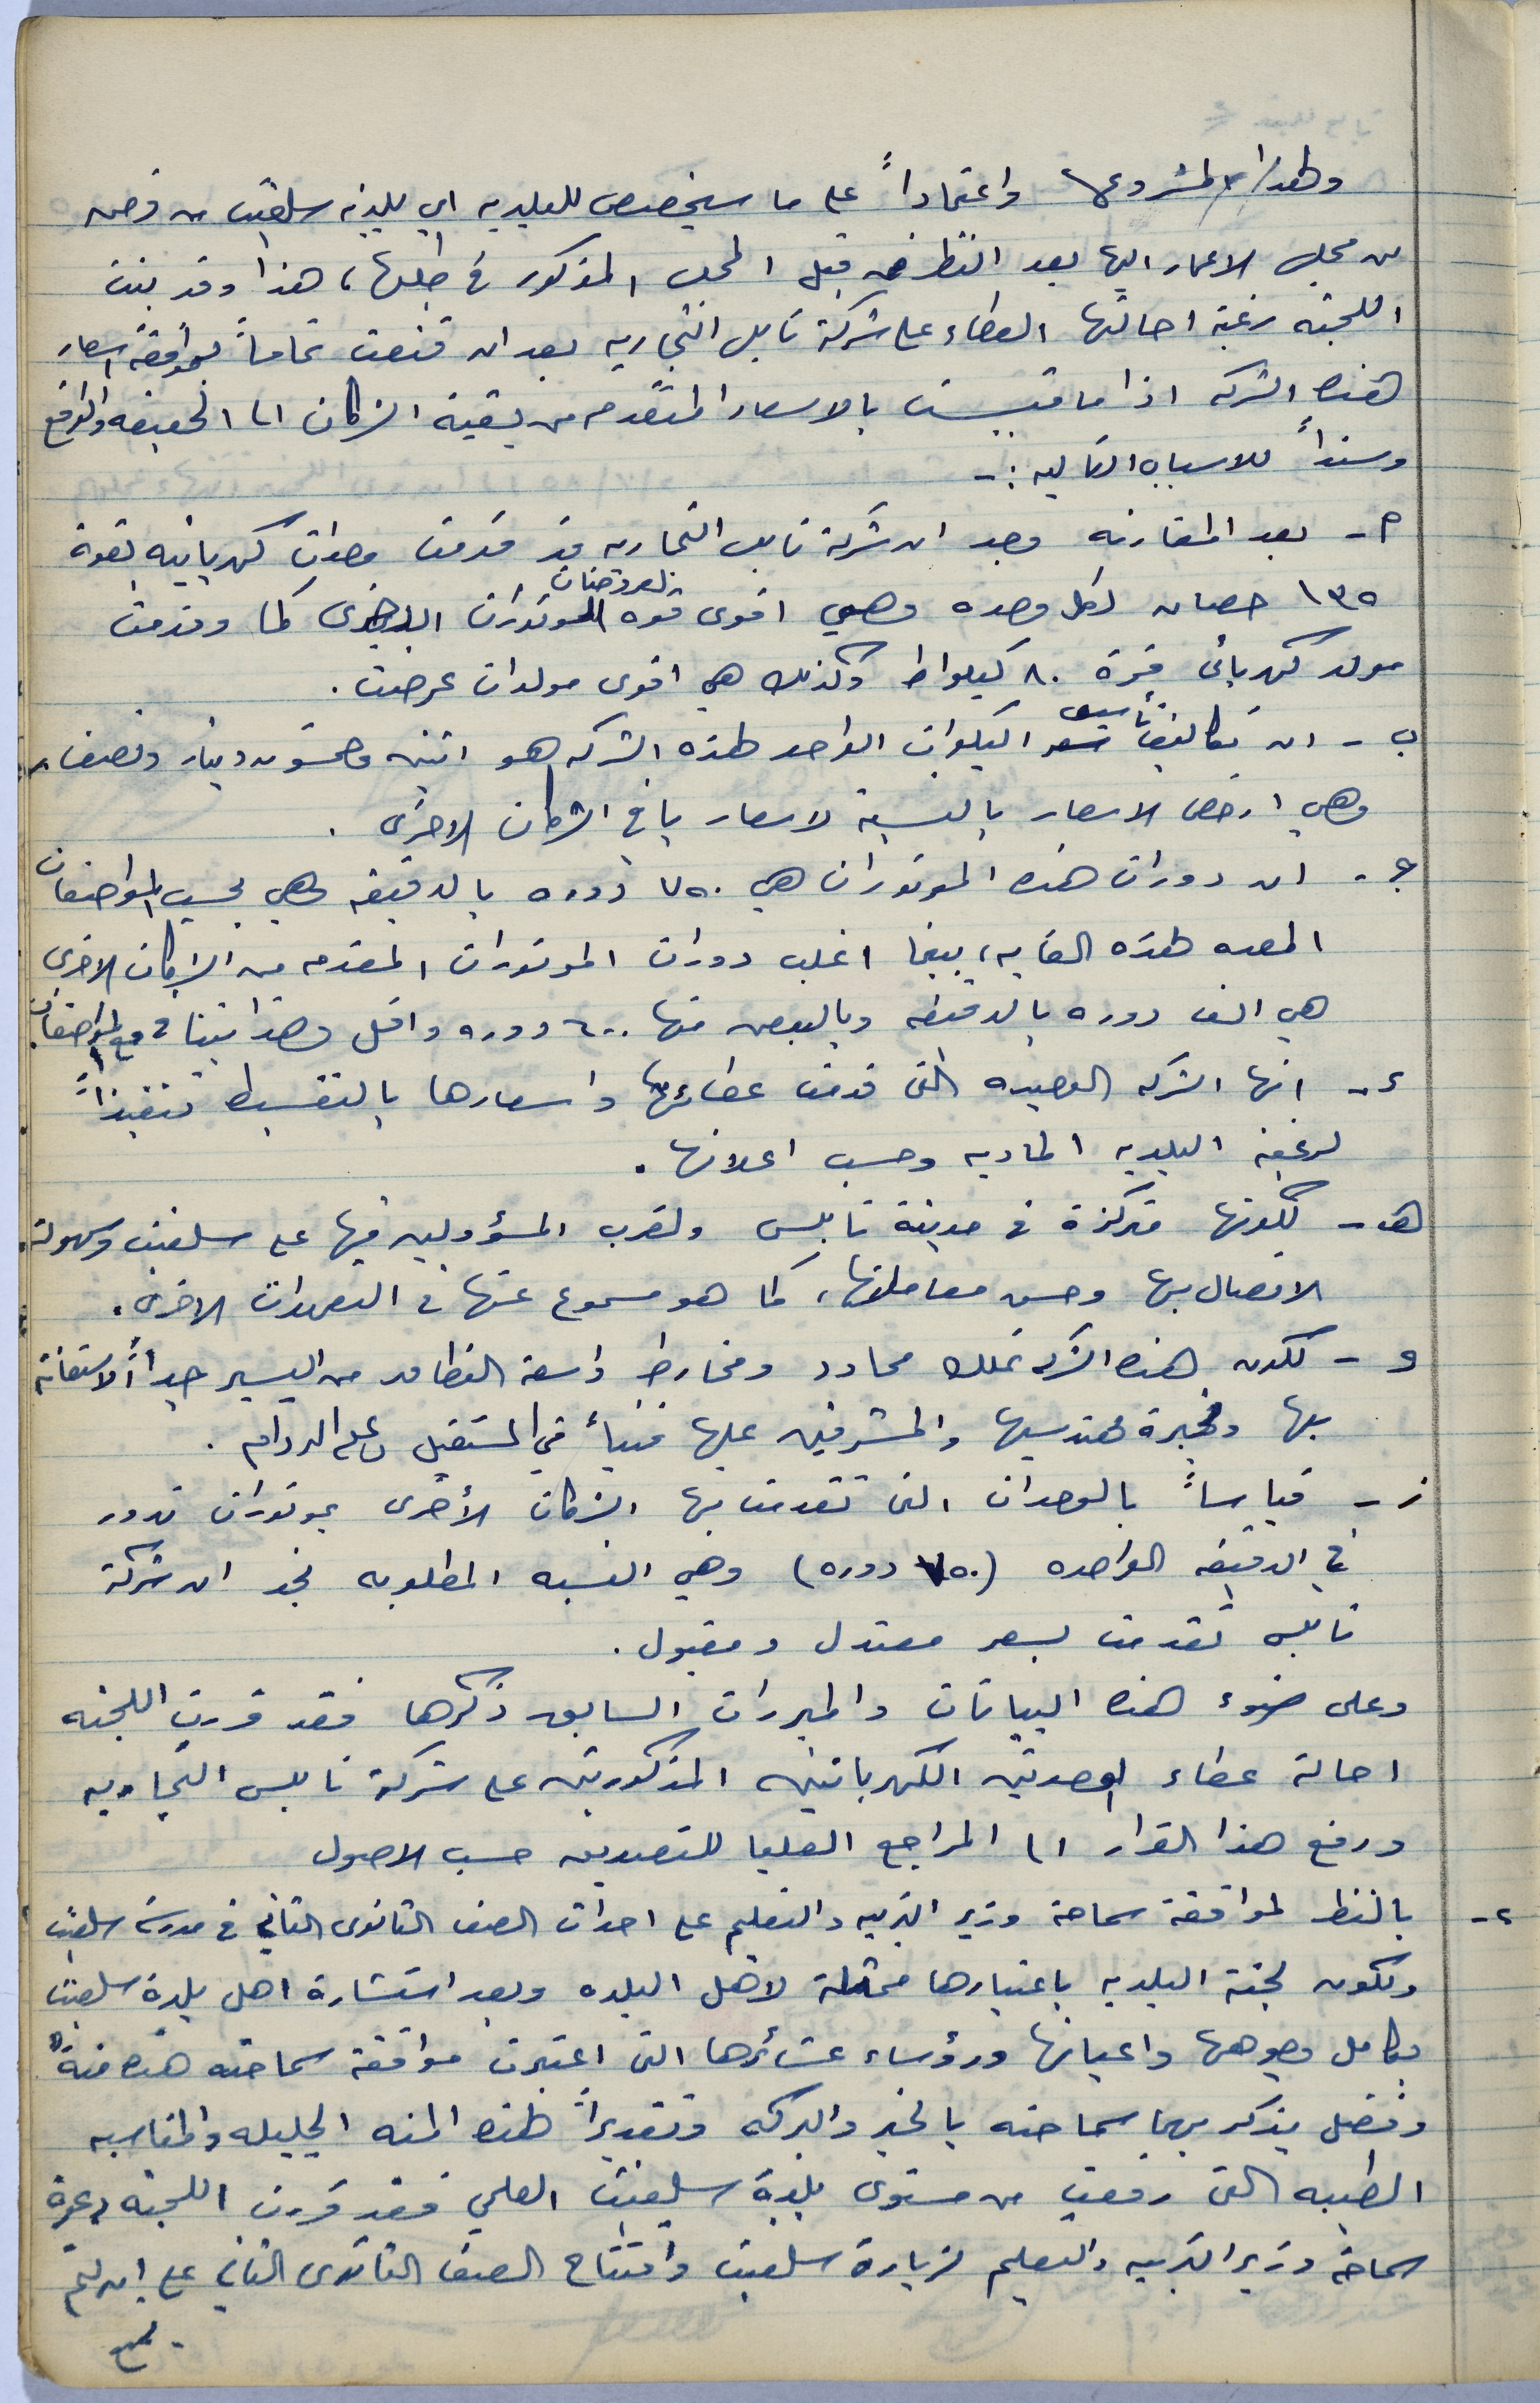 ولهذا المشروع واعتماداً على ما سيخصص للبلديه اي بلدية سلفيت من قرض
من مجلس الاعمار اليها بعد النظر من قبل المجلس المذكور في طلبها، هذا وقد بنت
اللجنه رغبة احالتها العطاء على شركة نابلس التجاريه بعد ان قنعت تماماً بموافقة اسعار
هذه الشركه اذا ما قيست بالاسعار المتقدمه من بقية الشركات الى الحقيقه والواقع
وسنداً للاسباب التاليه :-
أ - بعد المقارنه وجد ان شركة نابلس التجاريه قد قدمت وحدات كهربائيه بقوة
١٣٥ حصان لكل وحده وهي اقوى قوه الموتورات المعروضات الاخرى كما وقدمت
مولد كهربائي قوة ٨٠ كيلواط وكذلك هي اقوى مولدات عرضت .
ب - ان تكاليف تأسيس الكيلوات الواحد لهذه الشركه هو اثنين وخمسون دينار ونصف
وهي ارخص الاسعار بالنسبة لاسعار باقي الشركات الاخرى .
ج - ان دورات هذه الموتورات هي ٧٥٠ دوره بالدقيقه وهي بحسب المواصفات
المعده لهذه الغايه، بينما اغلب دورات الموتورات المقدمه من الشركات الاخرى
هي الف دوره بالدقيقه وبالبعض منها ٦٠٠ دوره واقل وهذا يتنافى مع المواصفات
د - انها الشركه الوحيده التي قدمت عطاءها واسعارها بالتقسيط تنفيذاً
لرغبة البلديه الماديه وحسب اعلانها .
هـ - لكونها متركزة في مدينة نابلس ولقرب المسؤولين فيها على سلفيت وسهولة
الاتصال بها وحسن معاملتها، كما هو مسموع عنها في التعهدات الاخرى .
و - لكون هذه الشركه تملك محادد ومخارط واسعة النطاق من اليسير جداً الاستعانة
بها وبخبرة مهندسيها والمشرفين عليها فنياً في المستقبل وعلى الدوام .
ز - قياساً بالوحدات التي تقدمت بها الشركات الأخرى بموتورات تدور
في الدقيقه الواحده (٧٥٠ دوره) وهي النسبه المطلوبه نجد ان شركة
نابلس تقدمت بسعر معتدل ومقبول .
وعلى ضوء هذه البيانات والمبررات السابق ذكرها فقد قررت اللجنه
احالة عطاء الوحدتين الكهربائيتين المذكورتين على شركة نابلس التجاريه
ورفع هذا القرار الى المراجع العليا للتصديق حسب الاصول
٢ - بالنظر لموافقة سماحة وزير التربيه والتعليم على احداث الصف الثانوي الثاني في مدرسة سلفيت
ولكون لجنة البلديه باعتبارها ممثلة لاهل البلده وبعد استشارة اهل بلدة سلفيت
بكامل وجوهها واعيانها ورؤساء عشائرها التي اعتبرت موافقة سماحته هذه منةً
وفضل يذكر بهما سماحته بالخير والبركه وتقديراً لهذه المنه الجليله والمناسبه
الطيبه التي رفعت من مستوى بلدة سلفيت العلمي فقد قررت اللجنه دعوة
سماحة وزير التربيه والتعليم لزيارة سلفيت وافتتاح الصف الثانوي الثاني على ان يتم